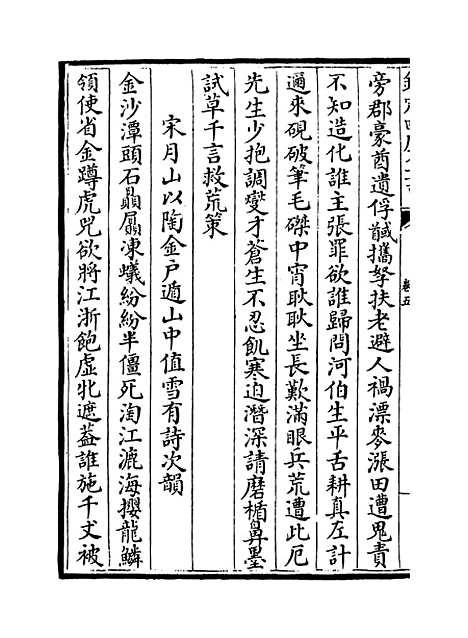 欽定四庫全書
卷五
旁郡豪酋遺俘馘攜孥扶老避人禍漂麥漲田遭鬼責
不知造化誰主張罪欲誰歸問河伯生平舌耕真左計
邇來硯破筆毛磔中宵耿耿坐長歎滿眼兵荒遭此厄
先生少抱調燮才蒼生不忍飢寒迫潛深請磨楯鼻墨
試草千言救荒策
宋月山以陶金戶遁山中值雪有詩次韻
金沙潭頭石贔屭凍蟻紛紛半僵死淘江漉海攖龍鱗
領使省金蹲虎兕欲將江浙飽虛牝遮葢誰施千丈被